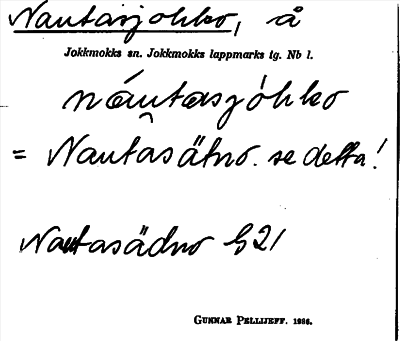 Nautasjohko, å
Jokkmokks sn. Jokkmokks lappmarks tg. Nb l.
náu̯tasjóhko
= Nautasätno. se detta!
Nautasädno G21
GUNNAR PELLIJEFF. 1986.